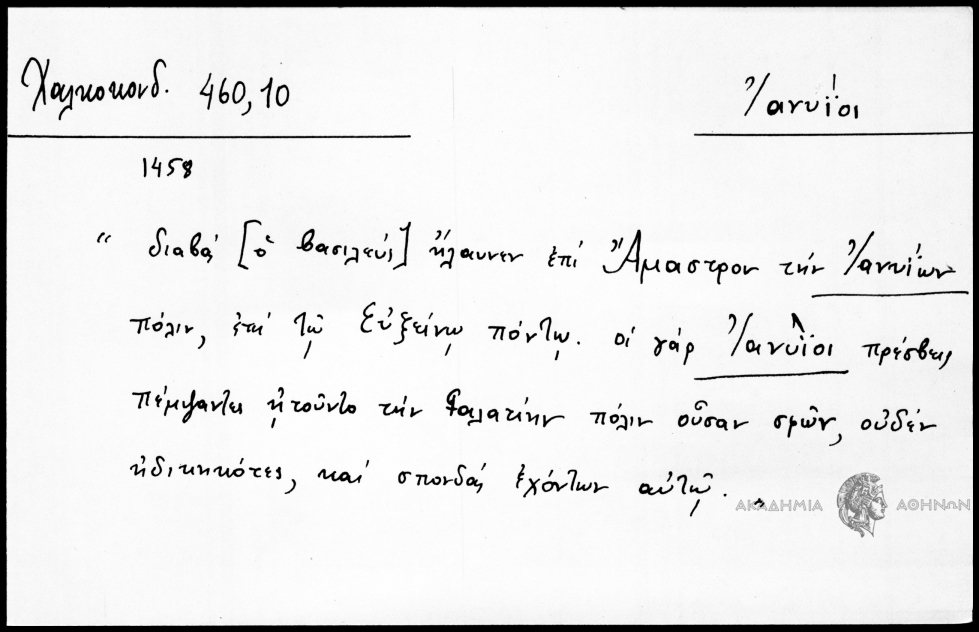 Χαλκοκονδ. 460,10
Ἰανυΐοι
1458
“ διαβὰς [ὁ βασιλεὺς] ἤλαυνεν ἐπὶ Ἄμαστρον τὴν Ἰανυΐων
πόλιν, ἐπὶ τῷ Εὐξείνῳ πόντῳ. οἱ γὰρ Ἰανύϊοι πρέσβεις
πέμψαντες ᾐτοῦντο τὴν Γαλατίην πόλιν οὖσαν σφῶν, οὐδὲν
ἠδικηκότες, καὶ σπονδὰς ἐχόντων αὐτῷ. „
ΑΚΑΔΗΜΙΑ ΑΘΗΝΩΝ